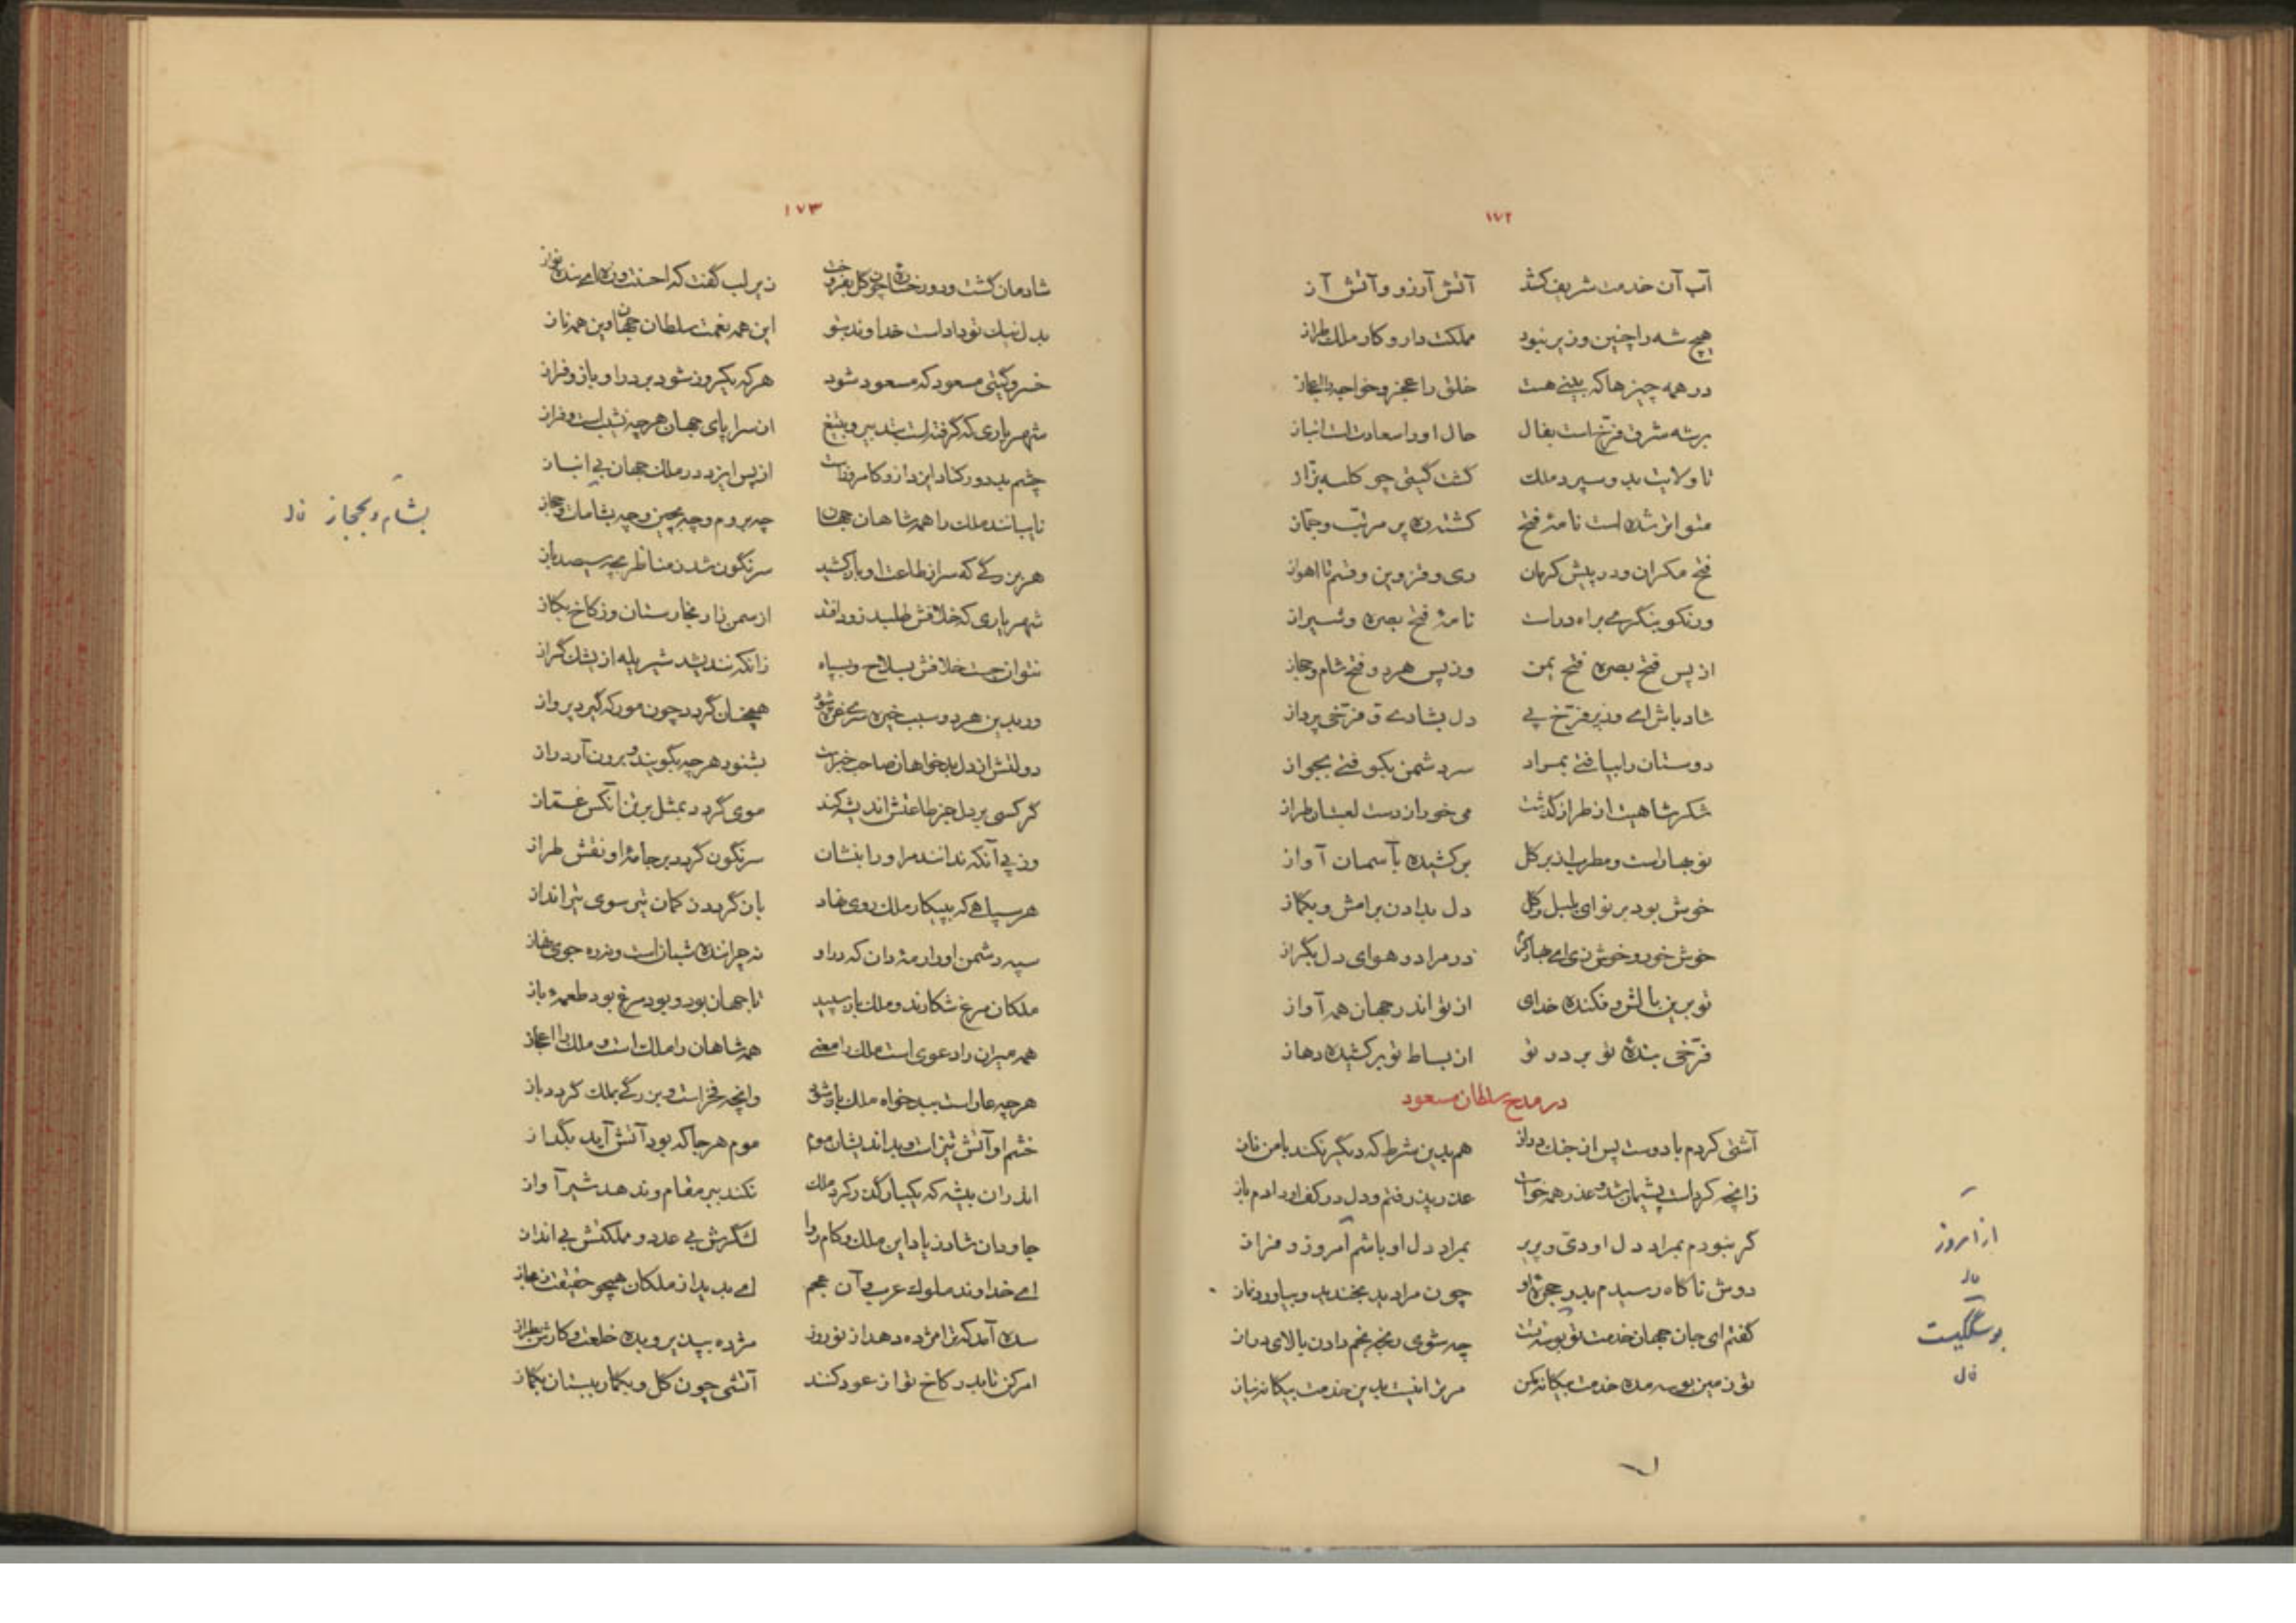 ۱۷۲
آب آن خدمت شریف کشد آتش آرزو و آتش آز
هیچ شه را چنین وزیر نبود مملکت دار و کار ملک طراز
در همه چیزها که بینی هست خلق را عجز و خواجه را اعجاز
برشه شرق فرخ است بفال حال او را سعادتست انباز
تا ولایت بدو سپرد ملک گشت گیتی چو کلبه بزاز
متواتر شده است نامهٔ فتح گشته ره پر مرتب و جماز
فتح مکران و در پیش کرمان ری و قزوین و قم تا اهواز
ور نکو بنگری براه دراست نامهٔ فتح بصره و شیراز
از پس فتح بصره فتح یمن وز پس هر دو فتح شام و حجاز
شاد باش ای وزیر فرخ پی دل بشادی و فرخی پرداز
دوستان را بیافتی بمراد سر دشمن بکوفتی بجواز
شکر شاهیت از طراز گذشت می خور از دست لعبتان طراز
نو بهارست و مطرب از بر گل بر کشیده بآسمان آواز
خوش بود بر نوای بلبل و گل دل بدادن برامش و بگماز
خوش خور و خوش زی ای بهار کرم در مراد و هوای دل بگراز
تو برین بالش و فکنده خدای از تو اندر جهان همه آواز
فرخی بندهٔ تو بر در تو از بساط تو بر کشیده دهاز
در مدح سلطان مسعود
آشتی کردم با دوست پس از جنگ دراز هم بدین شرط که دیگر نکند با من ناز
زانچه کردست پشیمان شد و عذر همه خواست عذر پذرفتم و دل در کف او دادم باز
گر نبودم بمراد دل او دی و پریر بمراد دل او باشم امروز و فراز
از امروز
دوش ناگاه رسیدم بدر حجرهٔ او چون مرا دید بخندید و بیاورد نماز
گفتم ای جان جهان خدمت تو بوسه تست چه شوی رنجه بخم دادن بالای دراز
تو زمین بوسه مده خدمت بیگانه مکن مر ترا نیست بدین خدمت بیگانه نیاز
۱۷۳
شادمان گشت و دو رخساره چون گل بفروخت زیر لب گفت که احسنت و زه ای بنده نواز
بدل نیک تو دادست خداوند بتو این همه نعمت سلطان جهان وین همه ناز
خسرو گیتی مسعود که مسعود شود هر که یکروز شود بر در او باز و فراز
شهریاری که گرفتست بتدبیر و بتیغ از سرا پای جهان هر چه نشیب است و فراز
چشم بد دور کناد ایزد ازو کامروز است از پس ایزد در ملک جهان بی انباز
نایبانند ملک را همه شاهان جهان چه بروم و چه بچین و چه بشامات و حجاز
بشام و بحجاز
هر بزرگی که سر از طاعت او باز کشید سرنگون شد ز مناظر بچه سیصد باز
شهریاری که خلافش طلبد زود افتد از سمن زار بخارستان وز کاخ بکاز
نتوان جست خلافش بسلاح و بسپاه زانکه نندیشد شیر یله از یشک گراز
ور بدین هر دو سبب خیره سری غره شود همچنان گردد چون مور که گیرد پرواز
دولتش از دل بدخواهان صاحب خبر است بشنود هر چه بگویند و برون آرد راز
گر کسی بر دل جز طاعتش اندیشه کند موی گردد بمثل بر تن آنکس غماز
وز پی آنکه ندانند مر او را بنشان سرنگون گردد بر جامهٔ او نقش طراز
هر سپاهی که به پیکار ملک روی نهاد باز گردد ز کمان تیر سوی تیر انداز
سپه دشمن او را رمه دان که درو نه چراننده شبان است و نه ره جوی نهاز
ملکان مرغ شکارند و ملک باز سپید تا جهان بود و بود مرغ بود طعمهٔ باز
همه میران را دعوی است ملک را معنی همه شاهان را ملک است و ملک را اعجاز
هر چه عارست به بدخواه ملک باز شود وانچه فخر است و بزرگی بملک گردد باز
خشم او آتش تیز است و بداندیشان موم موم هر جا که بود آتش آید بگداز
اندر آن بیشه که یکبار گذر کرد ملک نکند ببر مقام و ندهد شیر آواز
جاودان شاد زیاد این ملک کامروا لشگرش بی عدد و مملکتش بی انداز
ای خداوند ملوک عرب و آن عجم ای پدید از ملکان همچو حقیقت ز مجاز
سده آمد که ترا مژده دهد از نوروز مژده بپذیر و بده خلعت و کارش بطراز